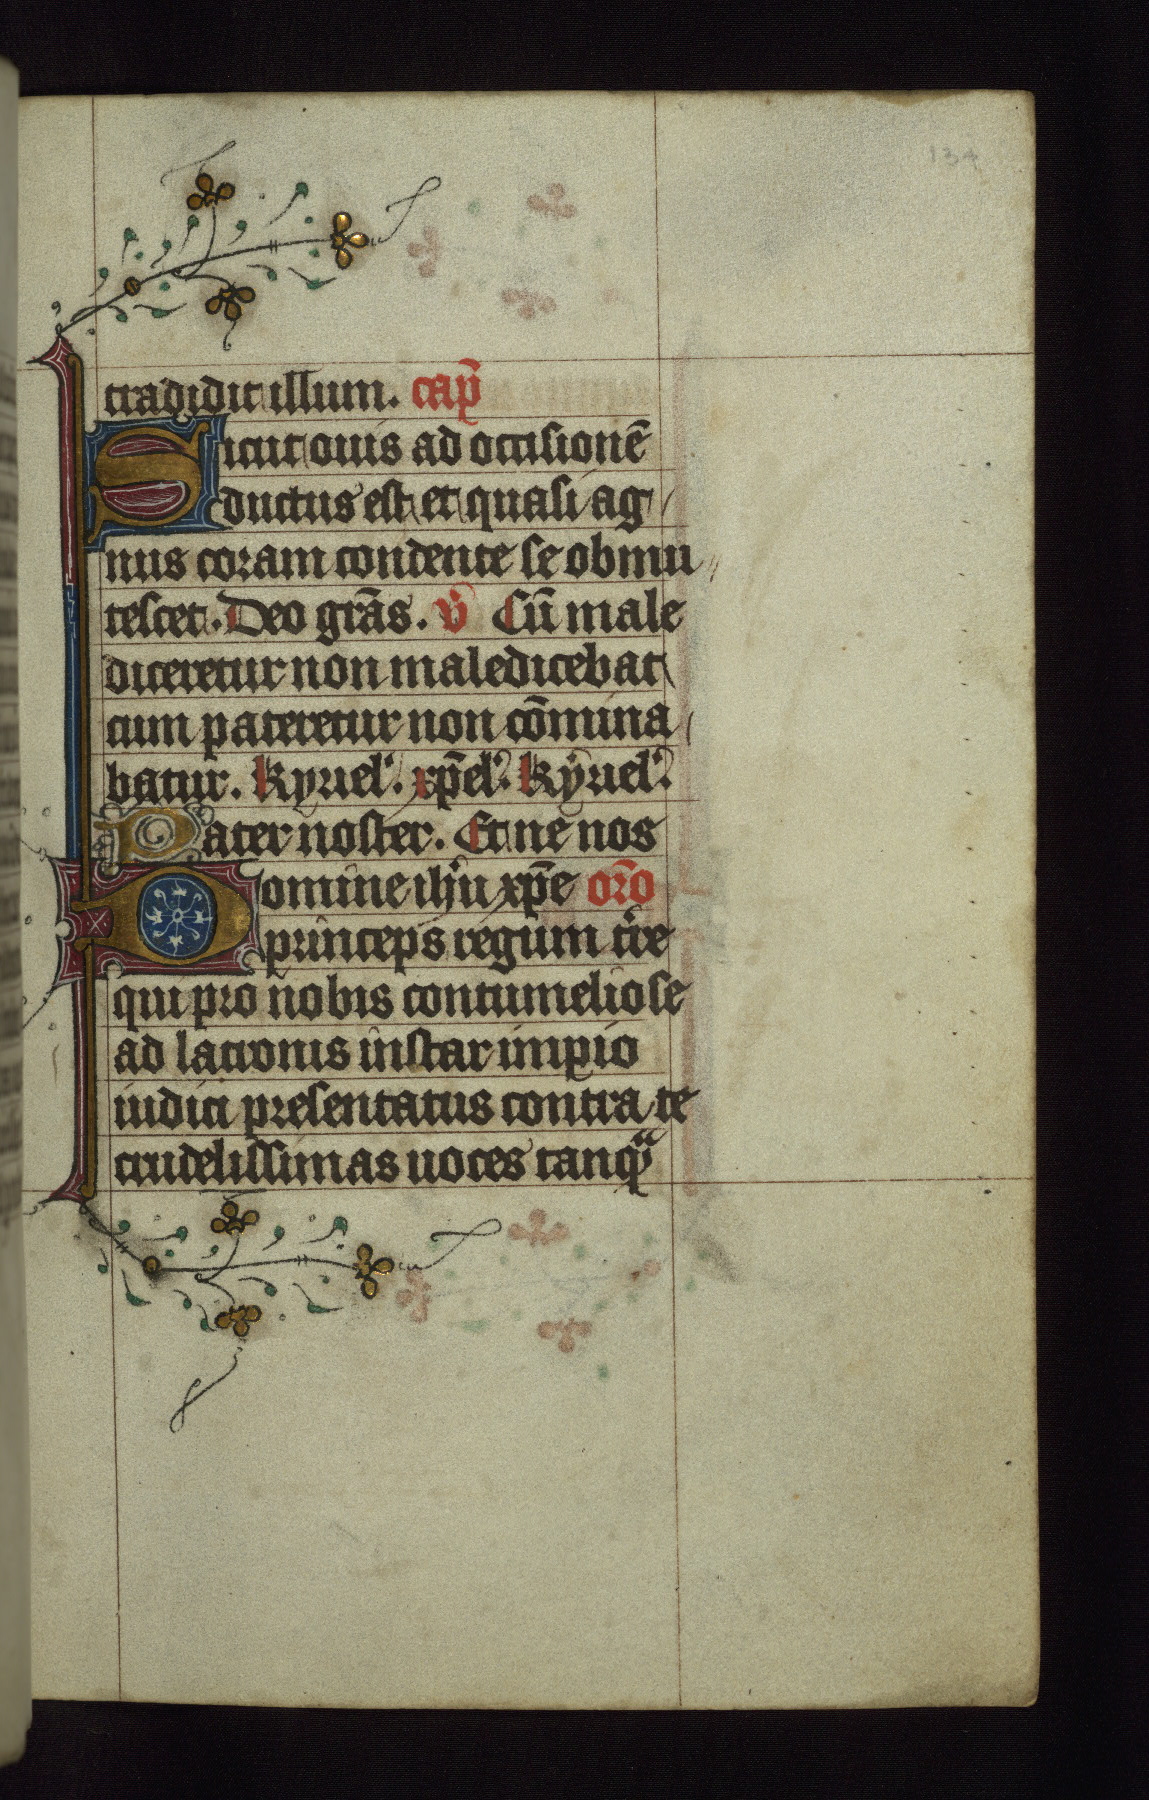 134
tradidit illum. cap̄
Sicut ouis ad occisionē
ductus est et quasi ag
nus coram tondente se obmu
tescet. Deo grās. v̄ Cū male
diceretur non maledicebat
cum pateretur non cōmina
batur. kyriel'. xp̄el'. kyriel'.
Pater noster. Et ne nos
Domine ihū xp̄e or̄o
princeps regum t̄re
qui pro nobis contumeliose
ad latronis instar impio
iudici presentatus contra te
crudelissimas uoces tanqᵃ